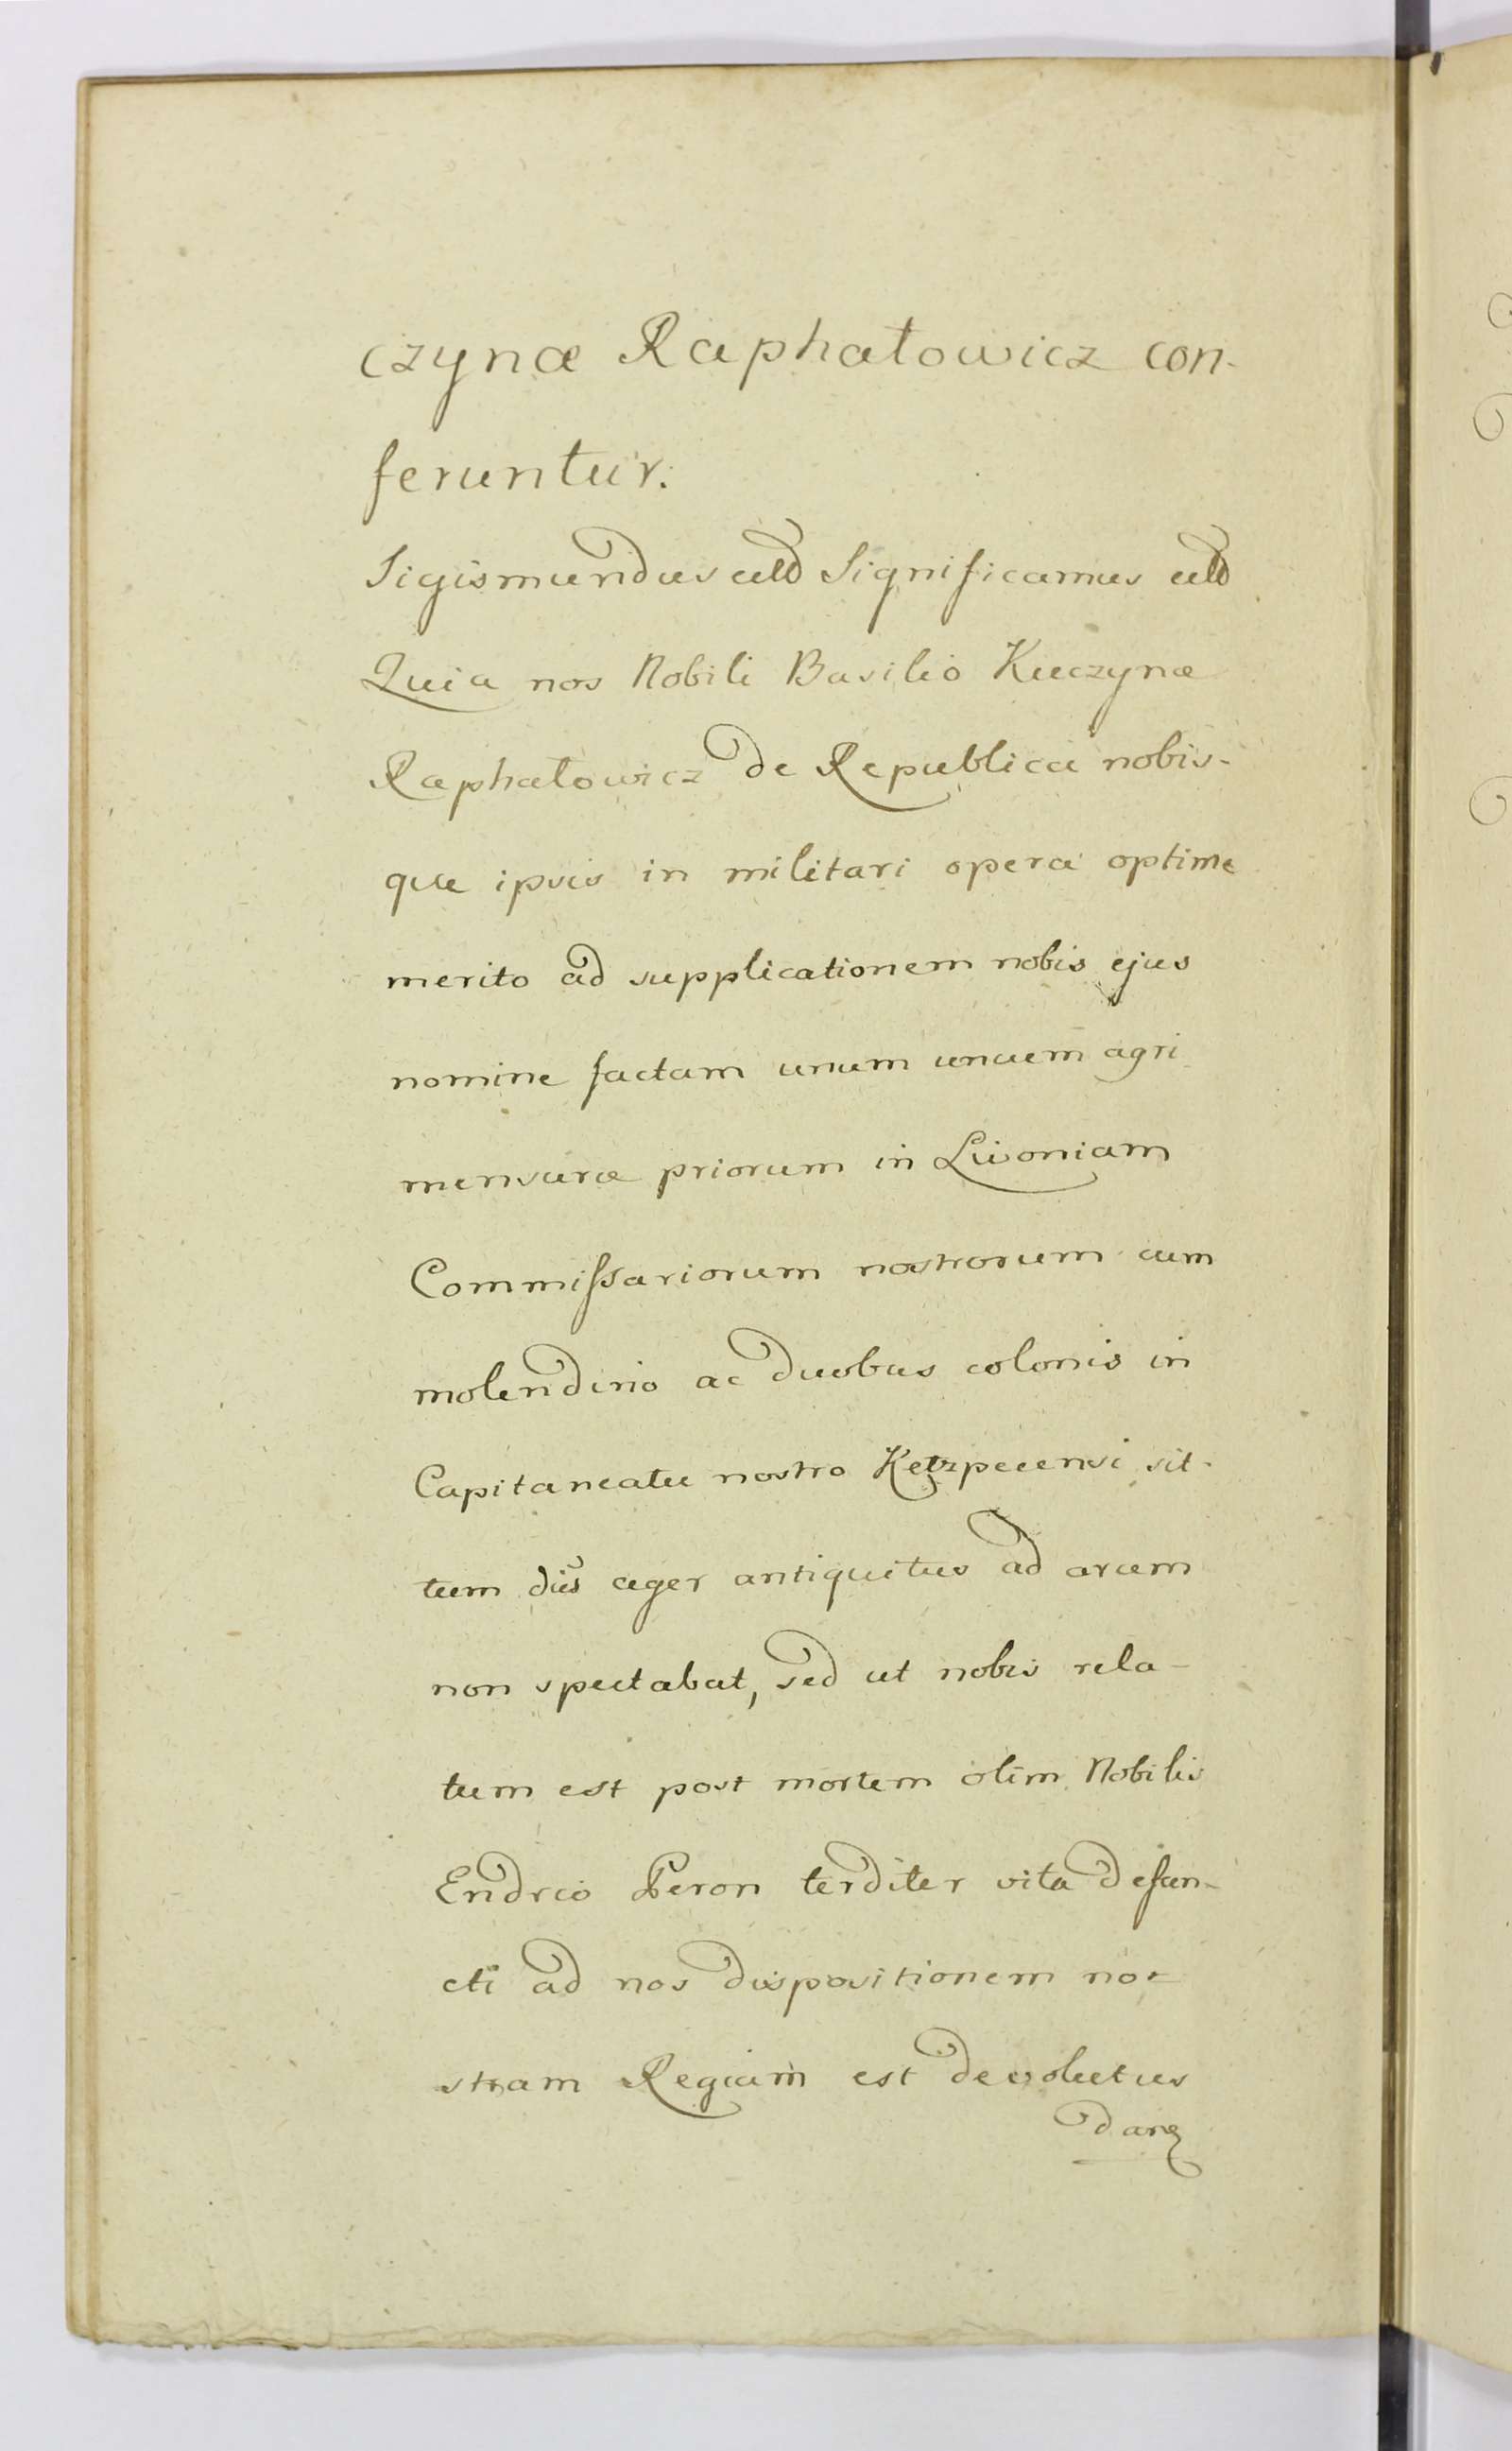 czynæ Raphałowicz con-
feruntur.
Sigismundus Significamus
Quia nos Nobili Basilio Kuczynæ
Raphałowicz de Republica nobis-
que ipsis in militari opera optime
merito ad supplicationem nobis ejus
nomine factam unum uncum agri
mensuræ priorum in Livoniam
Commissariorum nostrorum cum
molendino ac duobus colonis in
Capitaneatu nostro sit-
tum ager antiquitus ad arcem
non spectabat, sed ut nobis rela-
tum est post mortem olim Nobilis
vita defun-
cti ad nos dispositionem no-
stram Regiam est devolutus